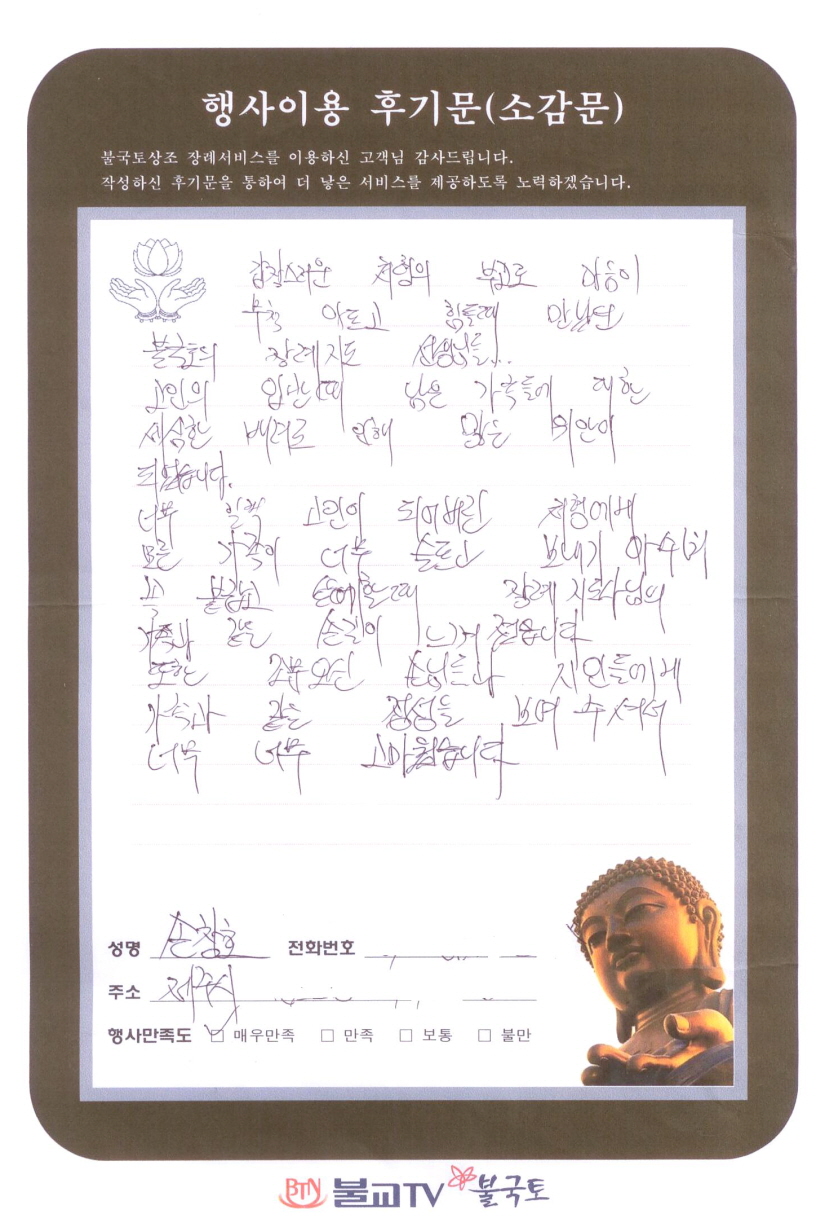 행사이용 후기문(소감문)
불국토상조 장례서비스를 이용하신 고객님 감사드립니다.
작성하신 후기문을 통하여 더 낳은 서비스를 제공하도록 노력하겠습니다.
갑작스러운 처형의 부고로 마음이
무척 아프고 힘들때 만났던
불국토의 장례지도 선생님들...
고인의 입관때 남은 가족들에 대한
세심한 배려로 인해 많은 위안이
되었습니다.
너무 일찍 고인이 되어버린 처형에게
모든 가족이 너무 슬프고 보내기 아쉬워
할때 장례 지도사님의
가족과 같은 손길이 느껴 졌습니다
또한 오신 손님들과 지인들에게
가족과 같은 정성을 보여 주셔서
너무 너무 고마웠습니다
성명 손창호 전화번호
주소 제주시
행사만족도 매우만족 만족 보통 불만
BTN 불교TV 불국토